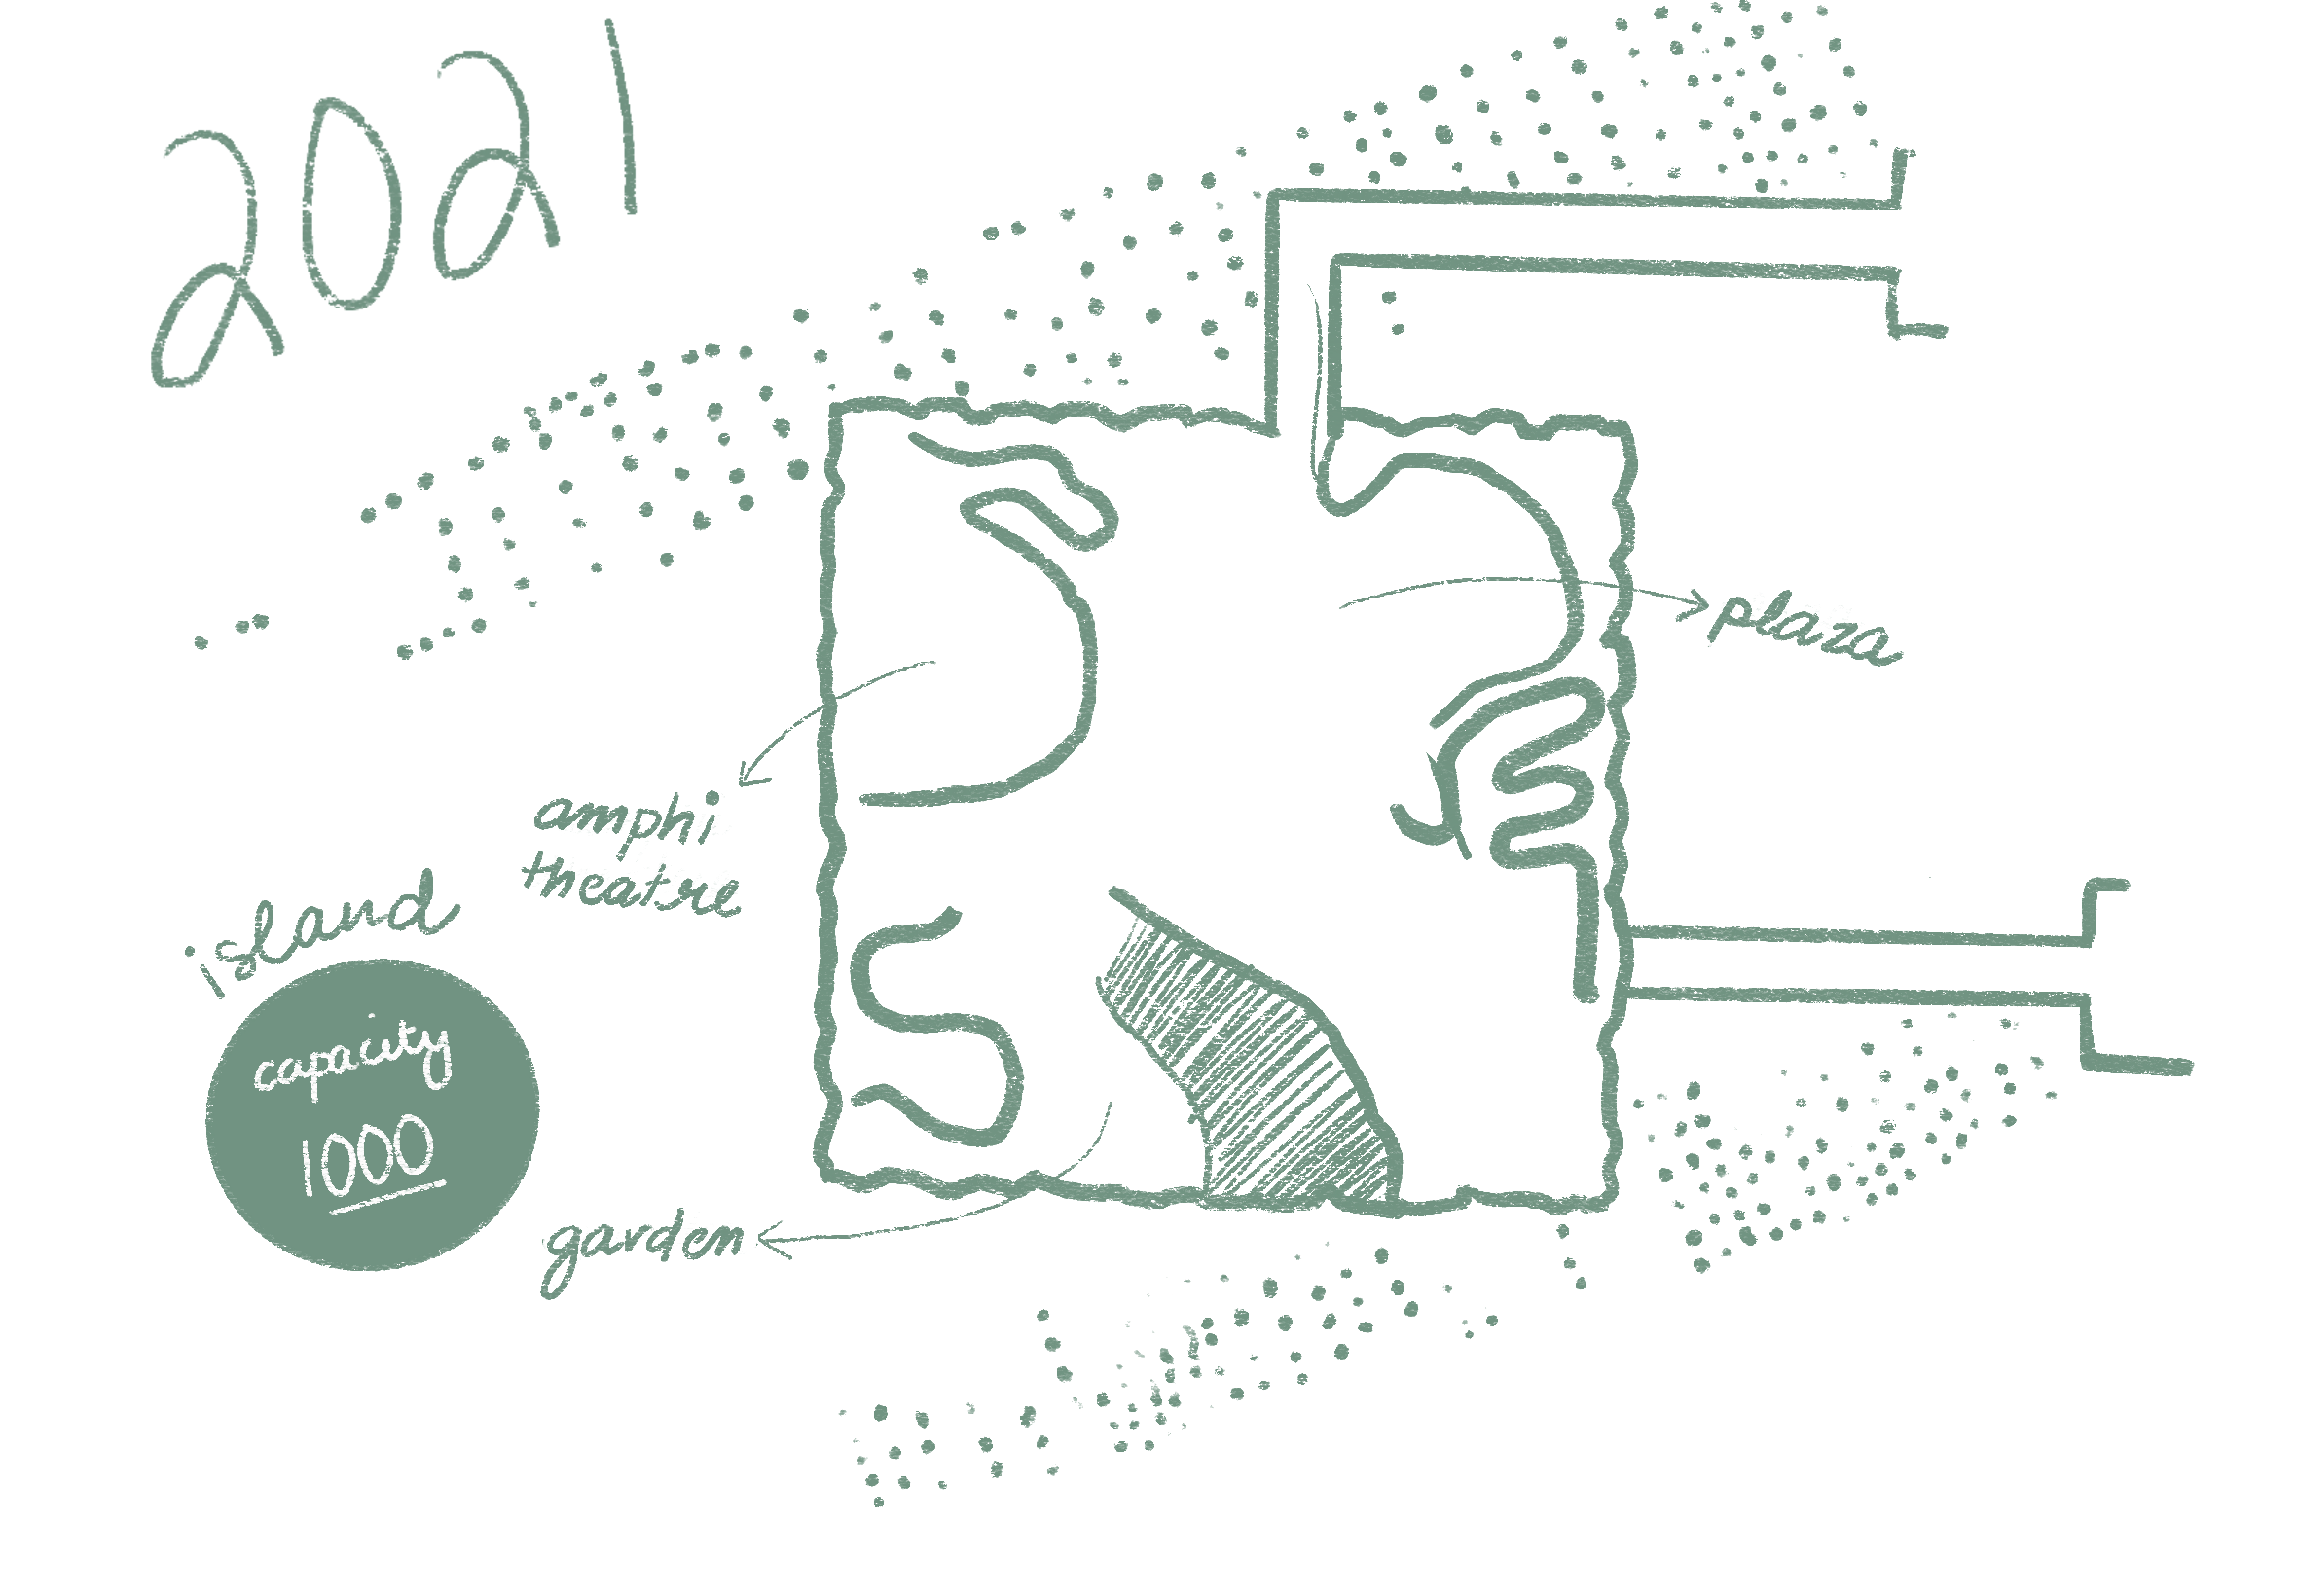 2021
plaza
amphi
theatre
island
capacity
1000
garden